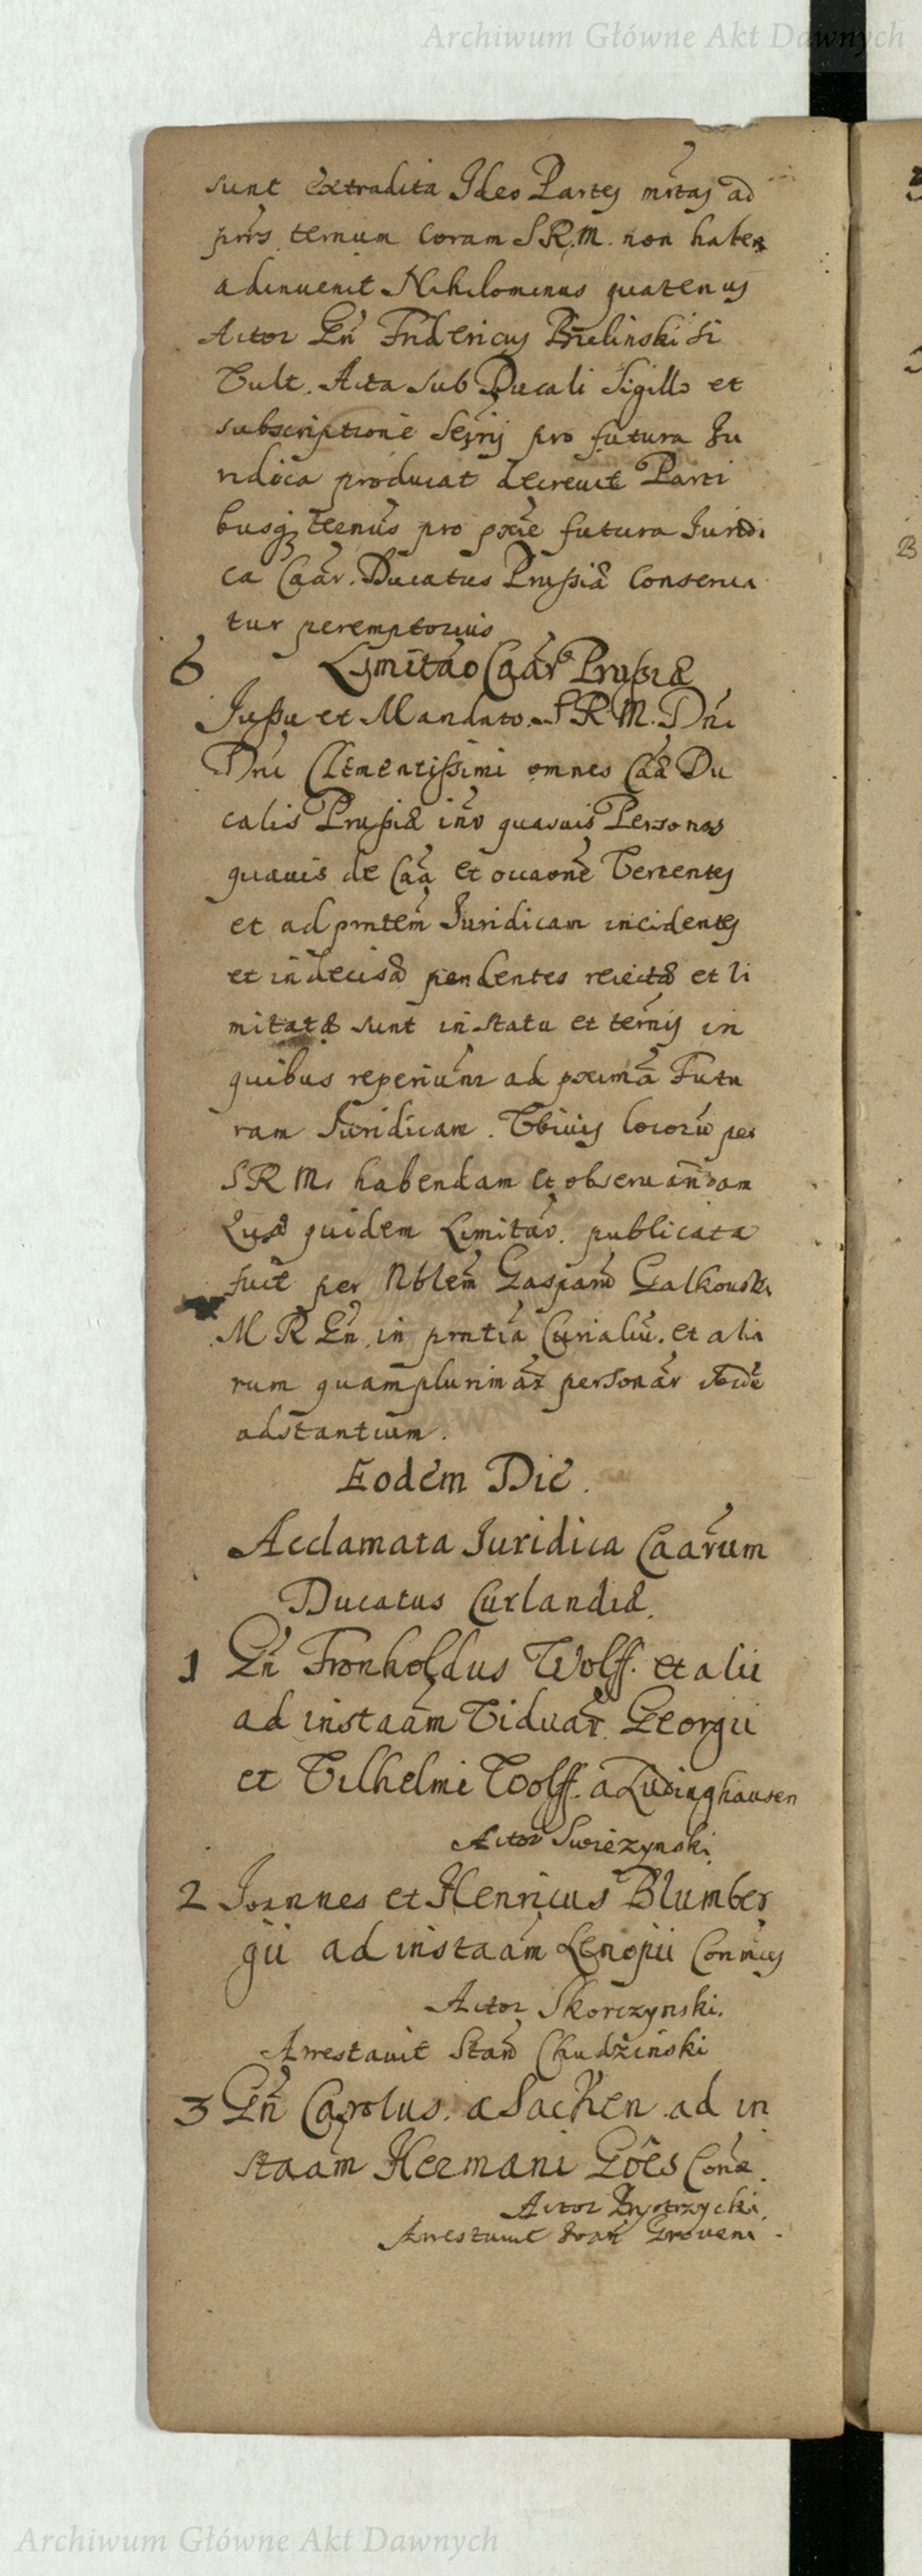 Archiwum Główne Akt Dawnych
sunt extradita Ideo Partes mrtas ad
prns ternum coram S.R.M. non haber
adinuenit Nihilominus quatenus
Actor Gn Fridericus Bielinski si
Vult. Acta sub Ducali Sigillo et
subscriptione pro futura Iu
ridica producat decreuit Parti
busq; pro pxie futura Iuridi
ca Caar. Ducatus Prussiæ conserua
tur peremptorius
6 Limitao Caar Prussiæ
Jussu et Mandato S.R.M. Dni
Dni Clementissimi omnes Caæ Du
calis Prussiæ inv quasuis Personas
quauis de Caa et occaone Vertentes
et ad prntem Iuridicam incidentes
et indecisæ pendentes reiectæ et li
mitatæ sunt in statu et ternis in
quibus reperiunr ad pximã Futu
ram Iuridicam. Vbiuis locorũ per
S R M. habendam et obseruandam
Quæ quidem Limitao. publicata
fuit per Nblem Gasparũ Galkouski
M R Gn in prntia Curialiũ. et alio
rum quamplurimar personar
adstantium.
Eodem Die.
Acclamata Iuridica Caarum
Ducatus Curlandiæ.
1 Gn Fronholdus Wolff. et alii
ad instaam Viduar. Georgii
et Vilhelmi Wolff. a Ludinghausen
Actor Swiezynski
2 Joannes et Henricus Blumber
gii ad instaam Conmus
Actor Skorczynski.
Arrestauit Stan Chudziński
3 Gn Carolus. a Sacken ad in
staam Hermani Göes Conæ.
Actor Bystrzycki
Arrestauit Joan Groueni.
Archiwum Główne Akt Dawnych